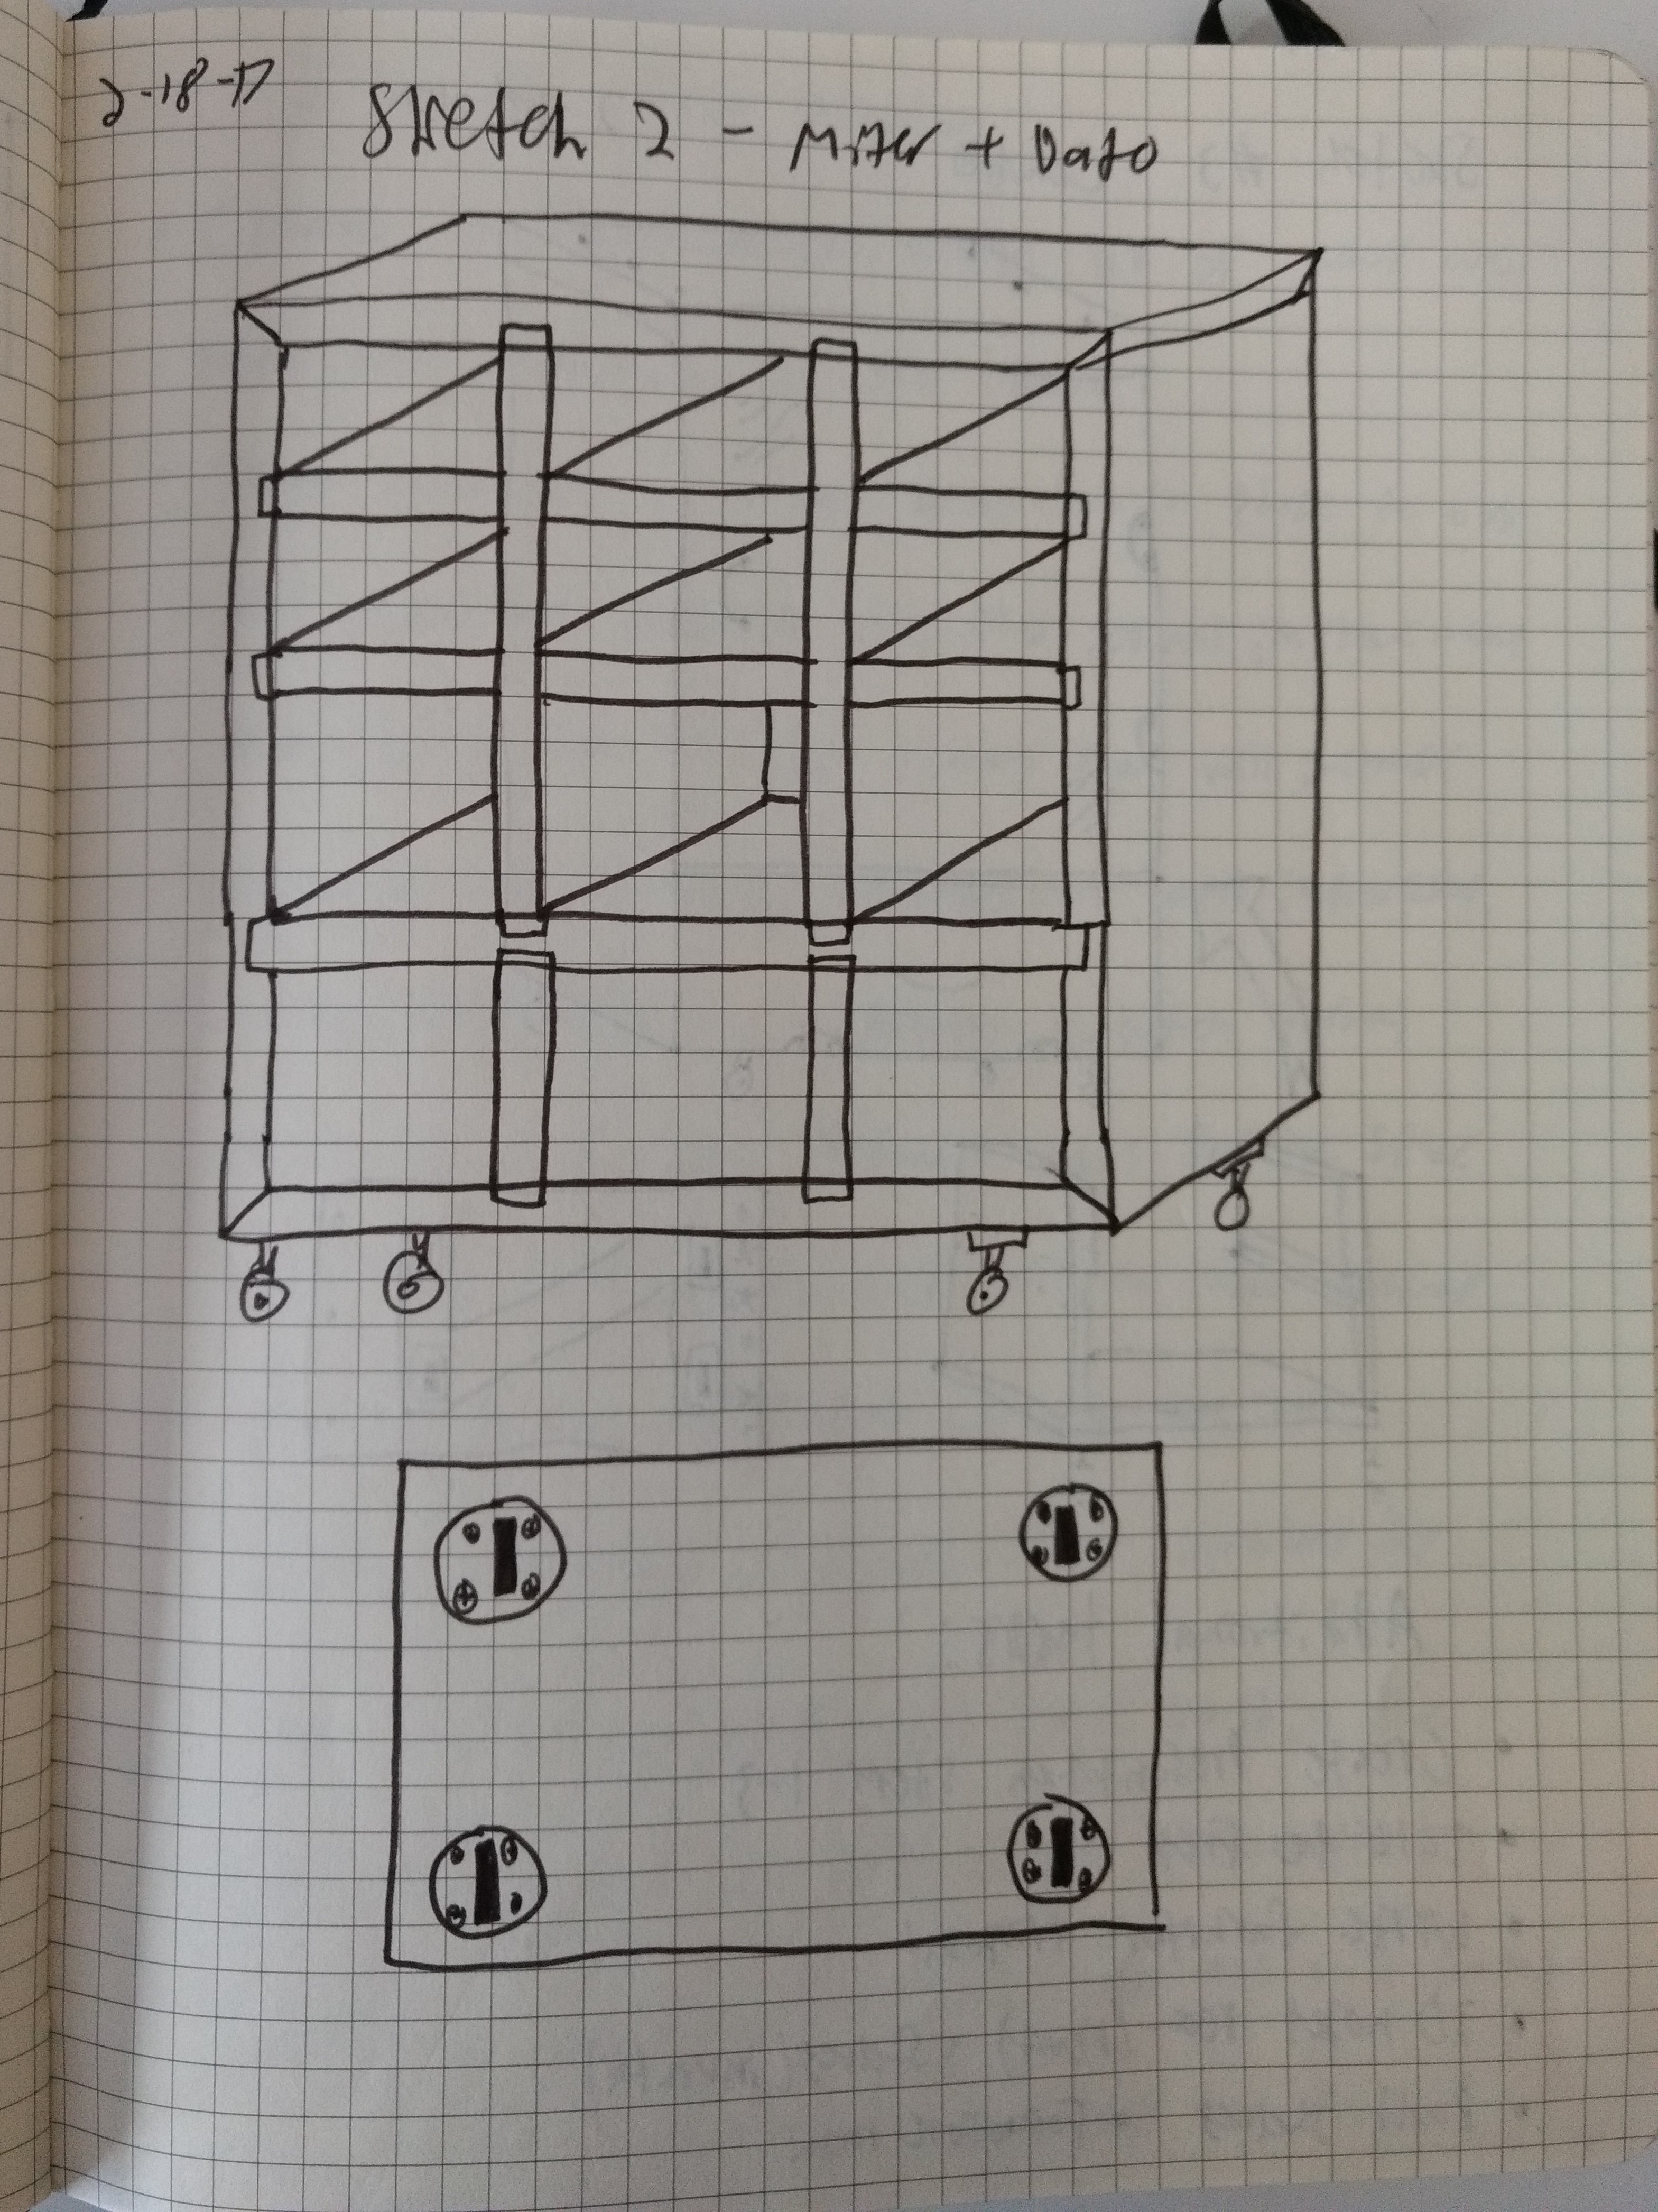 2-18-17
Sketch 2 - Miter + Dato